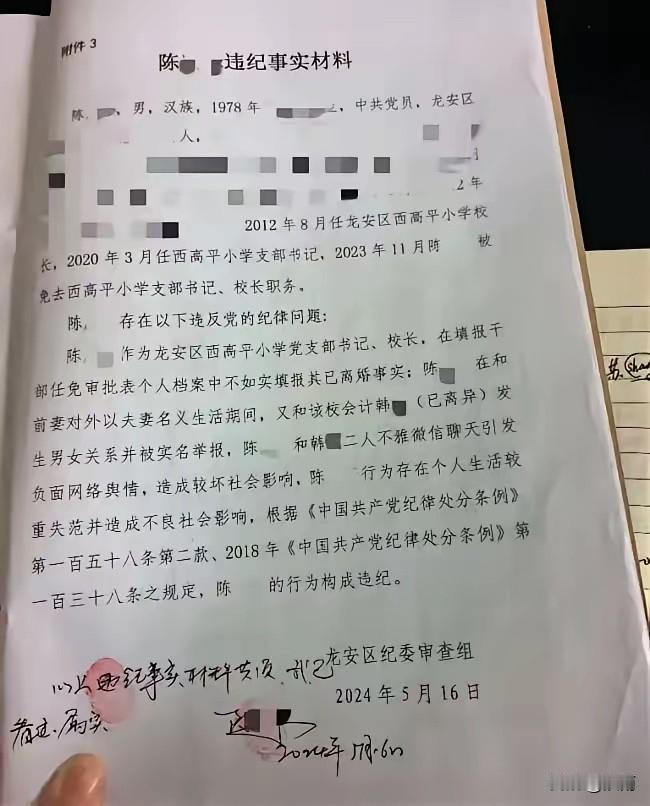 附件3
陈 违纪事实材料
陈 ，男，汉族，1978年 ，中共党员，龙安区
人，
2年
2012年8月任龙安区西高平小学校
长，2020年3月任西高平小学支部书记，2023年11月陈 被
免去西高平小学支部书记、校长职务。
陈 存在以下违反党的纪律问题：
陈 作为龙安区西高平小学党支部书记、校长，在填报干
部任免审批表个人档案中不如实填报其已离婚事实；陈 在和
前妻对外以夫妻名义生活期间，又和该校会计韩 （已离异）发
生男女关系并被实名举报，陈 和韩 二人不雅微信聊天引发
负面网络舆情，造成较坏社会影响，陈 行为存在个人生活较
重失范并造成不良社会影响，根据《中国共产党纪律处分条例》
第一百五十八条第二款、2018年《中国共产党纪律处分条例》第
一百三十八条之规定，陈 的行为构成违纪。
龙安区纪委审查组
2024年5月16日
以上违纪事实材料共1页，我已
看过，属实